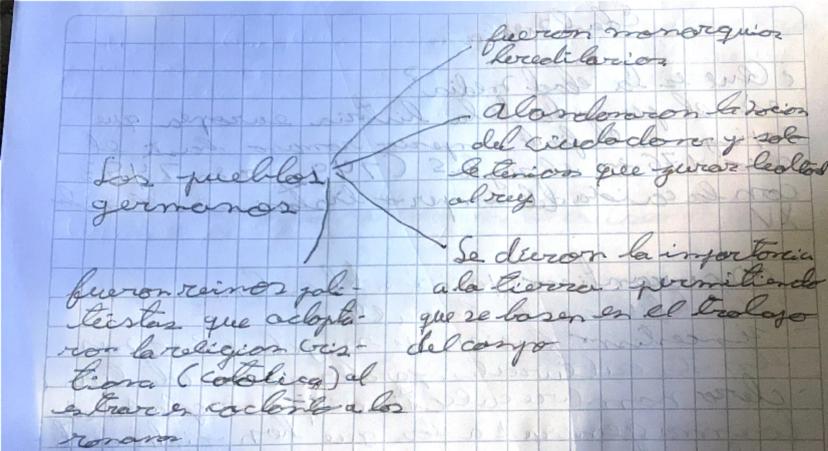 Los pueblos
germanos
fueron monarquias
hereditarias
abandonaron la nocion
del ciudadano y solo
le tenian que jurar lealtad
al rey
Se dieron la importancia
a la tierra permitiendo
que se basen en el trabajo
del campo
fueron reinos poli-
teistas que adopta-
ron la religion cris-
tiana (catolica) al
entrar en contacto a los
romanos